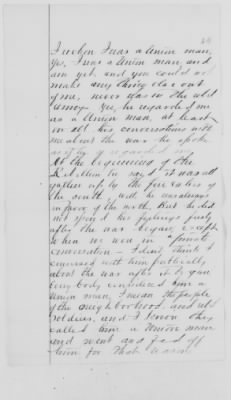 I reckon I was a Union man,
Yes, I was a Union man, and
am yet, and you could not
make any thing else out
of me, never was in the rebel
army. Yes, he regarded me
as a Union man, at least
in all his conversations with
me about the war he spoke
as if he regarded me
At the beginning of the
Rebellion he said it was all
gotten up by the fire eaters of
the south, well he was always
in favor of the north. But he did
not speak his feelings freely
after the war began, except
when we were in private
conversation. I don't think I
conversed with him publically
about the war after it began
Every body considered him a
Union man, I mean the people
of the neighborhood and reb
soldiers, and I know they
called him a Union man
and went and fed off
him for that reason